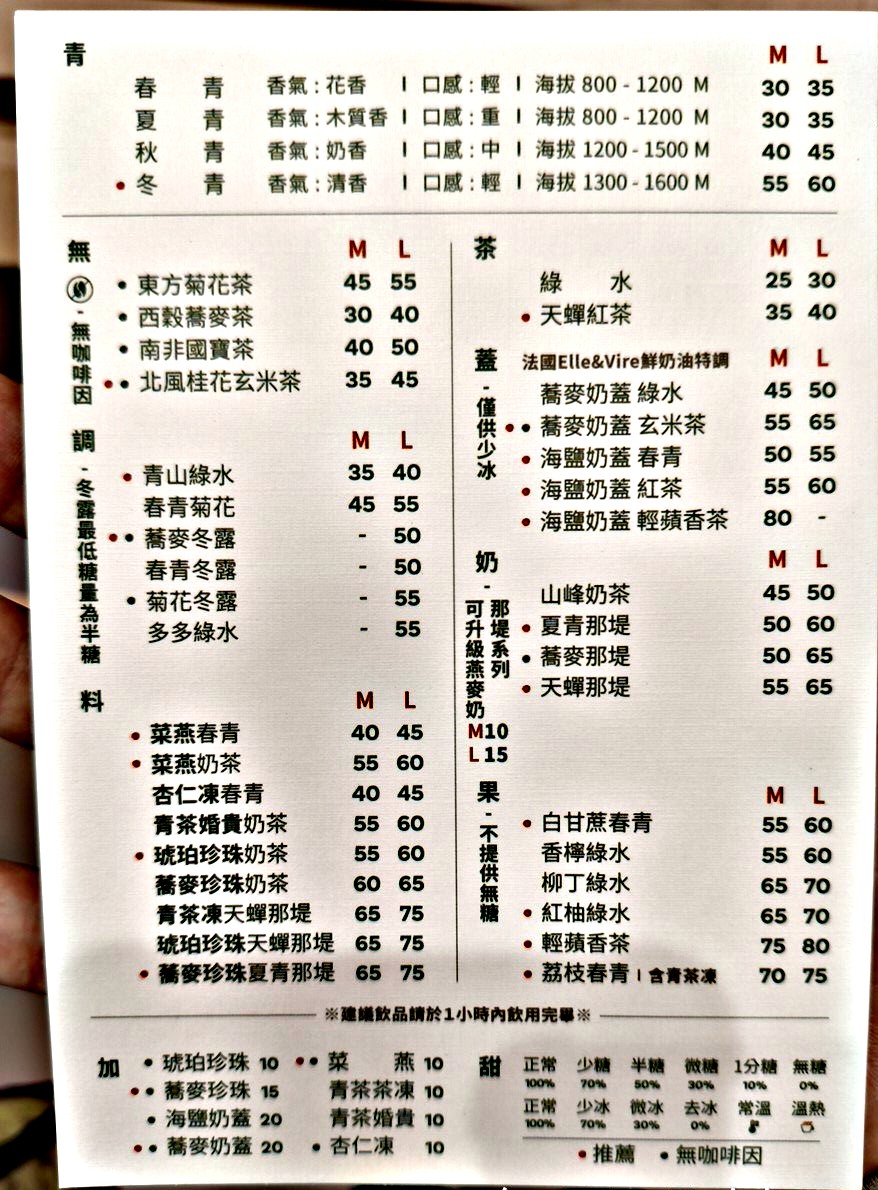 青 M L
春 青 香氣:花香 | 口感:輕 | 海拔 800 - 1200 M 30 35
夏 青 香氣:木質香 | 口感:重 | 海拔 800 - 1200 M 30 35
秋 青 香氣:奶香 | 口感:中 | 海拔 1200 - 1500 M 40 45
• 冬 青 香氣:清香 | 口感:輕 | 海拔 1300 - 1600 M 55 60
無 - 無咖啡因 M L
• 東方菊花茶 45 55
• 西穀蕎麥茶 30 40
• 南非國寶茶 40 50
•• 北風桂花玄米茶 35 45
調 - 冬露最低糖量為半糖 M L
• 青山綠水 35 40
春青菊花 45 55
•• 蕎麥冬露 - 50
春青冬露 - 50
• 菊花冬露 - 55
多多綠水 - 55
料 M L
• 菜燕春青 40 45
• 菜燕奶茶 55 60
杏仁凍春青 40 45
青茶婚貴奶茶 55 60
• 琥珀珍珠奶茶 55 60
蕎麥珍珠奶茶 60 65
青茶凍天蟬那堤 65 75
琥珀珍珠天蟬那堤 65 75
• 蕎麥珍珠夏青那堤 65 75
茶 M L
綠 水 25 30
• 天蟬紅茶 35 40
蓋 - 僅供少冰 法國Elle&Vire鮮奶油特調 M L
蕎麥奶蓋 綠水 45 50
•• 蕎麥奶蓋 玄米茶 55 65
• 海鹽奶蓋 春青 50 55
• 海鹽奶蓋 紅茶 55 60
• 海鹽奶蓋 輕蘋香茶 80 -
奶 - 那堤系列可升級燕麥奶 M10 L15 M L
山峰奶茶 45 50
• 夏青那堤 50 60
• 蕎麥那堤 50 65
• 天蟬那堤 55 65
果 - 不提供無糖 M L
• 白甘蔗春青 55 60
香檸綠水 55 60
柳丁綠水 65 70
• 紅柚綠水 65 70
• 輕蘋香茶 75 80
• 荔枝春青 | 含青茶凍 70 75
※建議飲品請於1小時內飲用完畢※
加
• 琥珀珍珠 10 •• 菜 燕 10
•• 蕎麥珍珠 15 青茶茶凍 10
• 海鹽奶蓋 20 青茶婚貴 10
•• 蕎麥奶蓋 20 • 杏仁凍 10
甜 正常 少糖 半糖 微糖 1分糖 無糖
100% 70% 50% 30% 10% 0%
正常 少冰 微冰 去冰 常溫 溫熱
100% 70% 30% 0%
• 推薦 • 無咖啡因